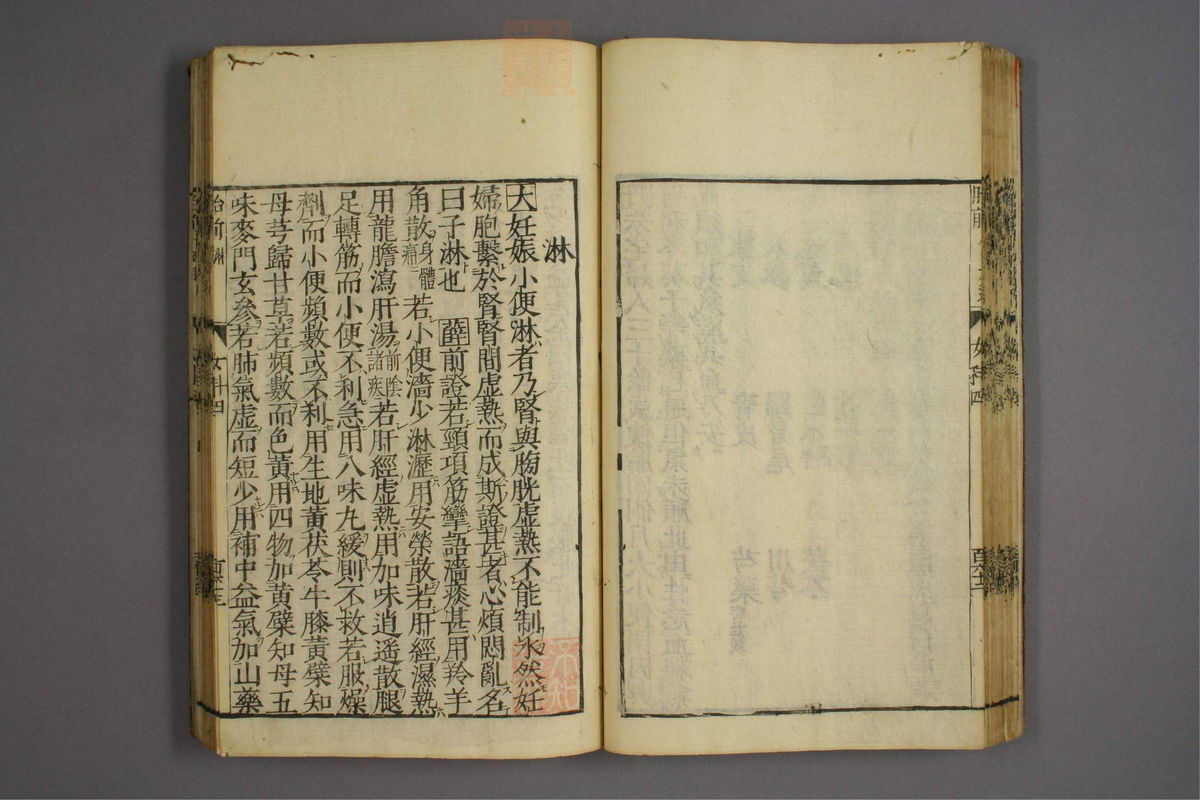 淋
大妊娠小便淋者乃腎與膀胱虛熱不能制水然妊
婦胞繫於腎腎間虛熱而成斯證甚者心煩悶亂名
曰子淋也 薛前證若頸項筋攣語澀痰甚用羚羊
角散身體痛若小便澀少淋瀝用安榮散若肝經濕熱
用龍膽瀉肝湯前陰諸疾若肝經虛熱用加味逍遙散腿
足轉筋而小便不利急用八味丸緩則不救若服燥
劑而小便頻數或不利用生地黃茯苓牛膝黃蘗知
母芎歸甘草若頻數而色黃用四物加黃蘗知母五
味麥門玄參若肺氣虛而短少用補中益氣加山藥
胎前 淋
女科四